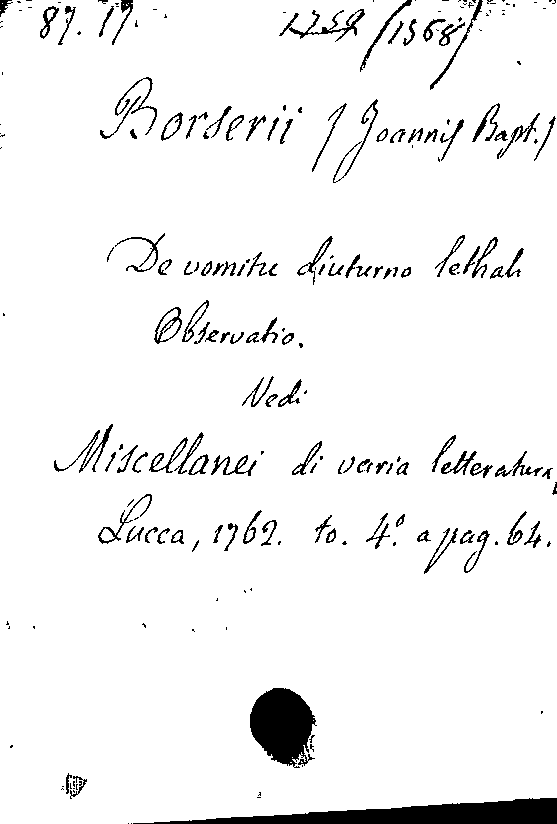 87. 17. 1759 (1368)
Borserii (Joannis Bapt.)
De vomitu diuturno lethali
Observatio.
Vedi
Miscellanei di varia letteratura,
Lucca, 1762. to. 4.º a pag. 64.